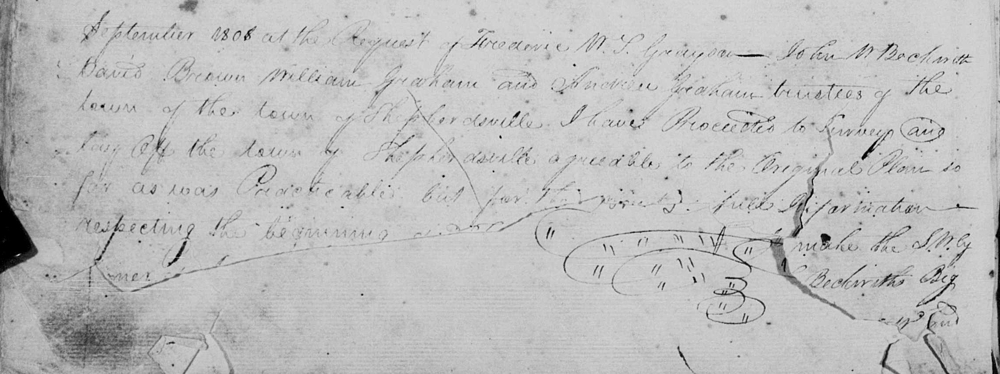 September 1808 at the Request of Frederic W. S. Grayson — John W Beckwith
David Brown William Graham and Andrew Graham trustees of the
town of the town of Shepherdsville I have Proceeded to Survey and
Lay Off the town of Shepherdsville agreeable to the Original Plan so
far as was Practicable but for the want of full Information
respecting the beginning
make the S.W. Cor
ner Beckwiths Big
and